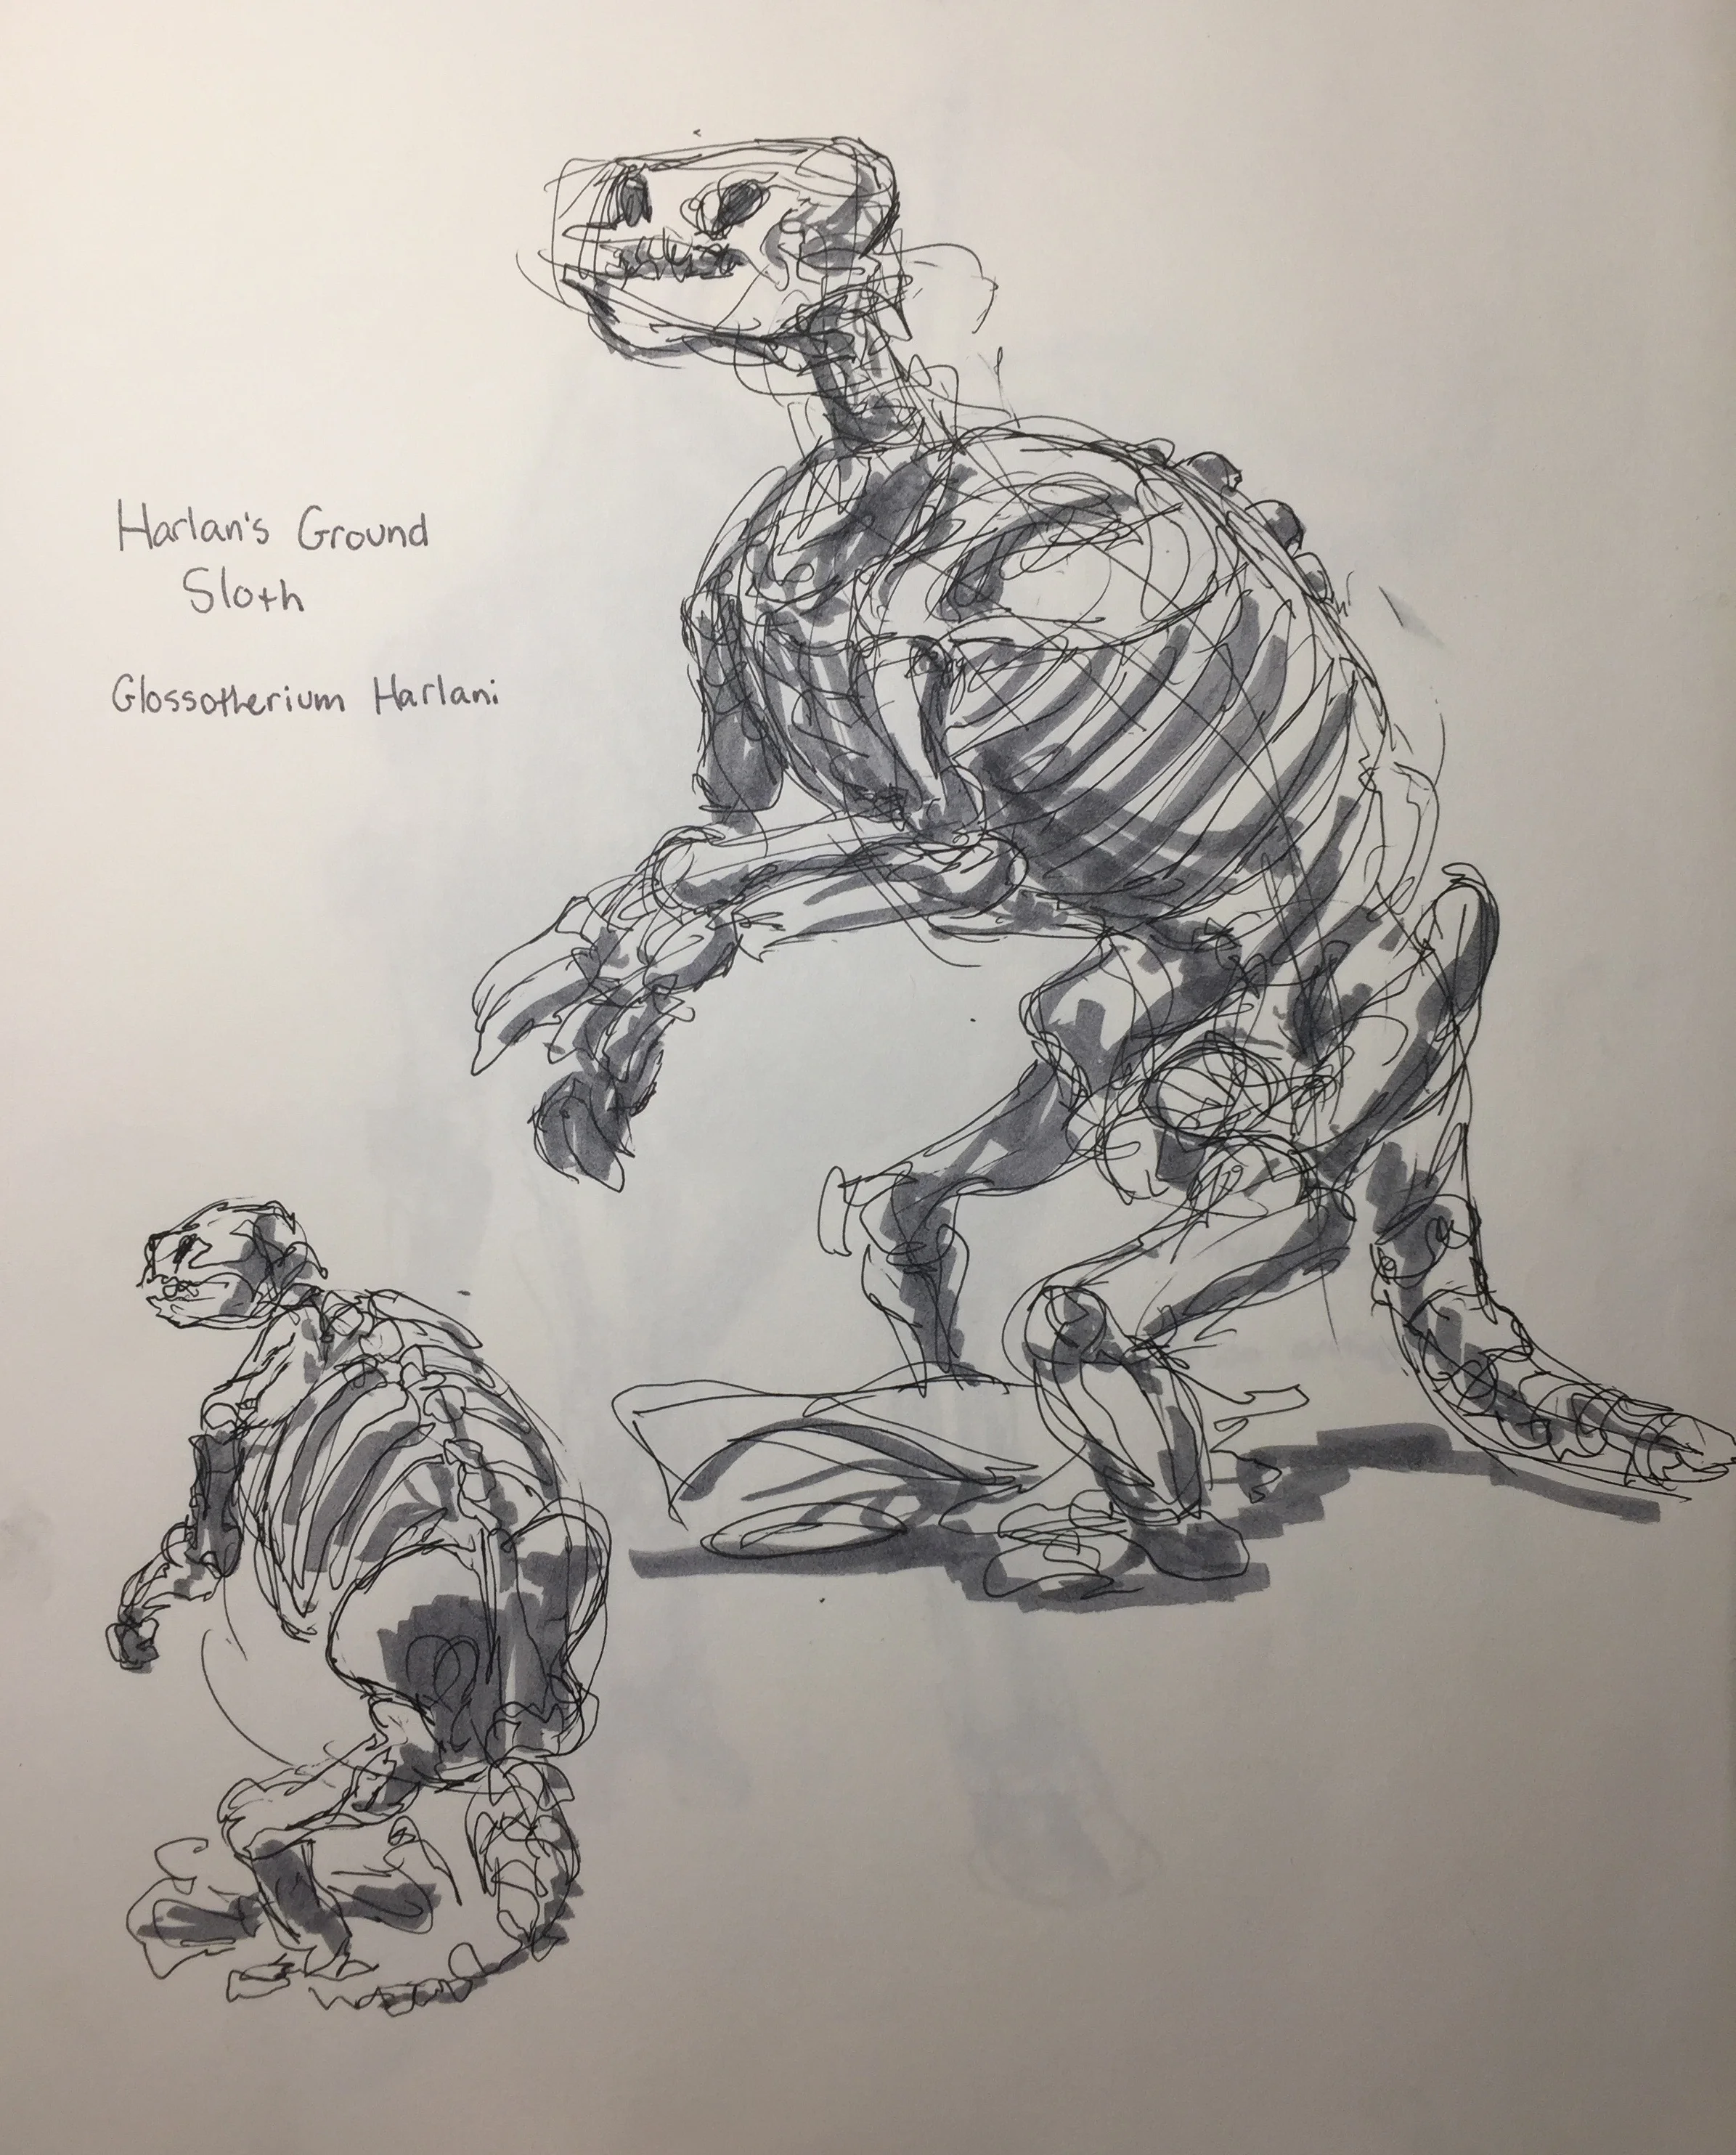 Harlan's Ground
Sloth
Glossotherium Harlani